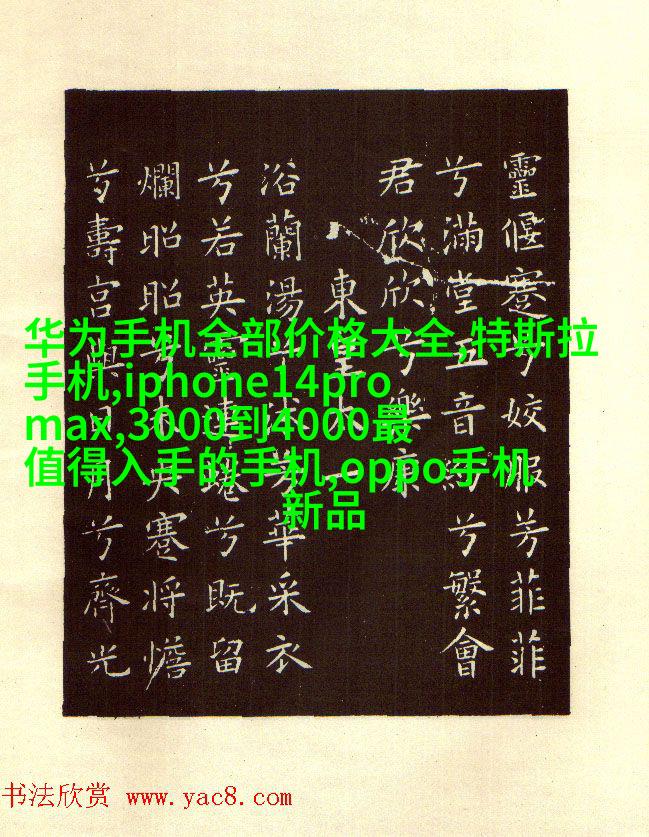 靈偃蹇兮姣服芳菲菲
兮滿堂五音紛兮繁會
君欣欣兮樂康
東皇太一
浴蘭湯兮沐芳華采衣
兮若英靈連蜷兮既留
爛昭昭兮未央蹇將憺
兮壽宮與日月兮齊光
华为手机全部价格大全,特斯拉
手机,iphone14pro
max,3000到4000最
值得入手的手机,oppo手机
新品
书法欣赏 www.yac8.com